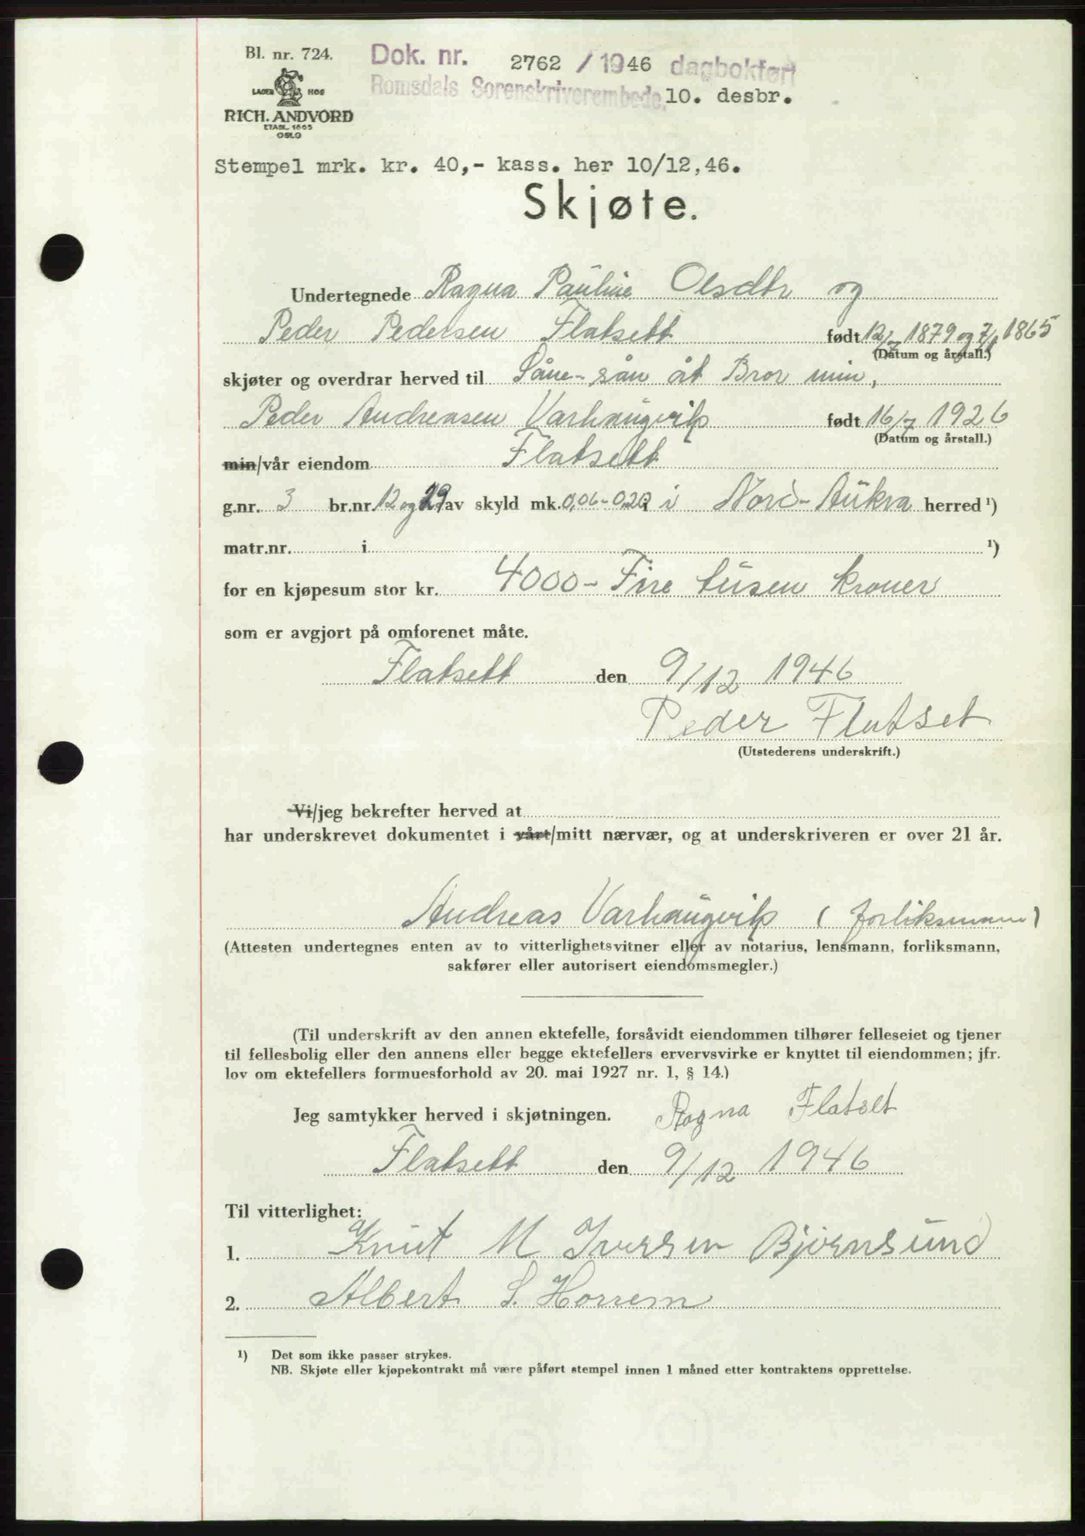 Bl. nr. 724.
LAGER HOS
RICH. ANDVORD
ETABL. 1865
OSLO
Dok. nr. 2762 / 1946 dagbokført
Romsdals Sorenskriverembede, 10. desbr.
Stempel mrk. kr. 40,- kass. her 10/12,46.
Skjøte.
Undertegnede Ragna Pauline Olsdtr og
Peder Pedersen Flatsett født 12/7 1879 og 7/1 1865
(Datum og årstall.)
skjøter og overdrar herved til Såne-sån åt Bror min,
Peder Andreasen Varhaugvik født 16/7 1926
(Datum og årstall.)
min/vår eiendom Flatsett
g.nr. 3 br.nr. 12 og 29 av skyld mk. 0,06-0,20 i Nord-Aukra herred ¹)
matr.nr. i ¹)
for en kjøpesum stor kr. 4000- Fire tusen kroner
som er avgjort på omforenet måte.
Flatsett den 9/12 1946
Peder Flatset
(Utstederens underskrift.)
Vi/jeg bekrefter herved at
har underskrevet dokumentet i vårt/mitt nærvær, og at underskriveren er over 21 år.
Andreas Varhaugvik (forliksmann)
(Attesten undertegnes enten av to vitterlighetsvitner eller av notarius, lensmann, forliksmann,
sakfører eller autorisert eiendomsmegler.)
(Til underskrift av den annen ektefelle, forsåvidt eiendommen tilhører felleseiet og tjener
til fellesbolig eller den annens eller begge ektefellers ervervsvirke er knyttet til eiendommen; jfr.
lov om ektefellers formuesforhold av 20. mai 1927 nr. 1, § 14.)
Jeg samtykker herved i skjøtningen. Ragna Flatset
Flatsett den 9/12 1946
Til vitterlighet:
1. Knut M Iversen Bjørnsund
2. Albert S. Horrem
¹) Det som ikke passer strykes.
NB. Skjøte eller kjøpekontrakt må være påført stempel innen 1 måned etter kontraktens opprettelse.